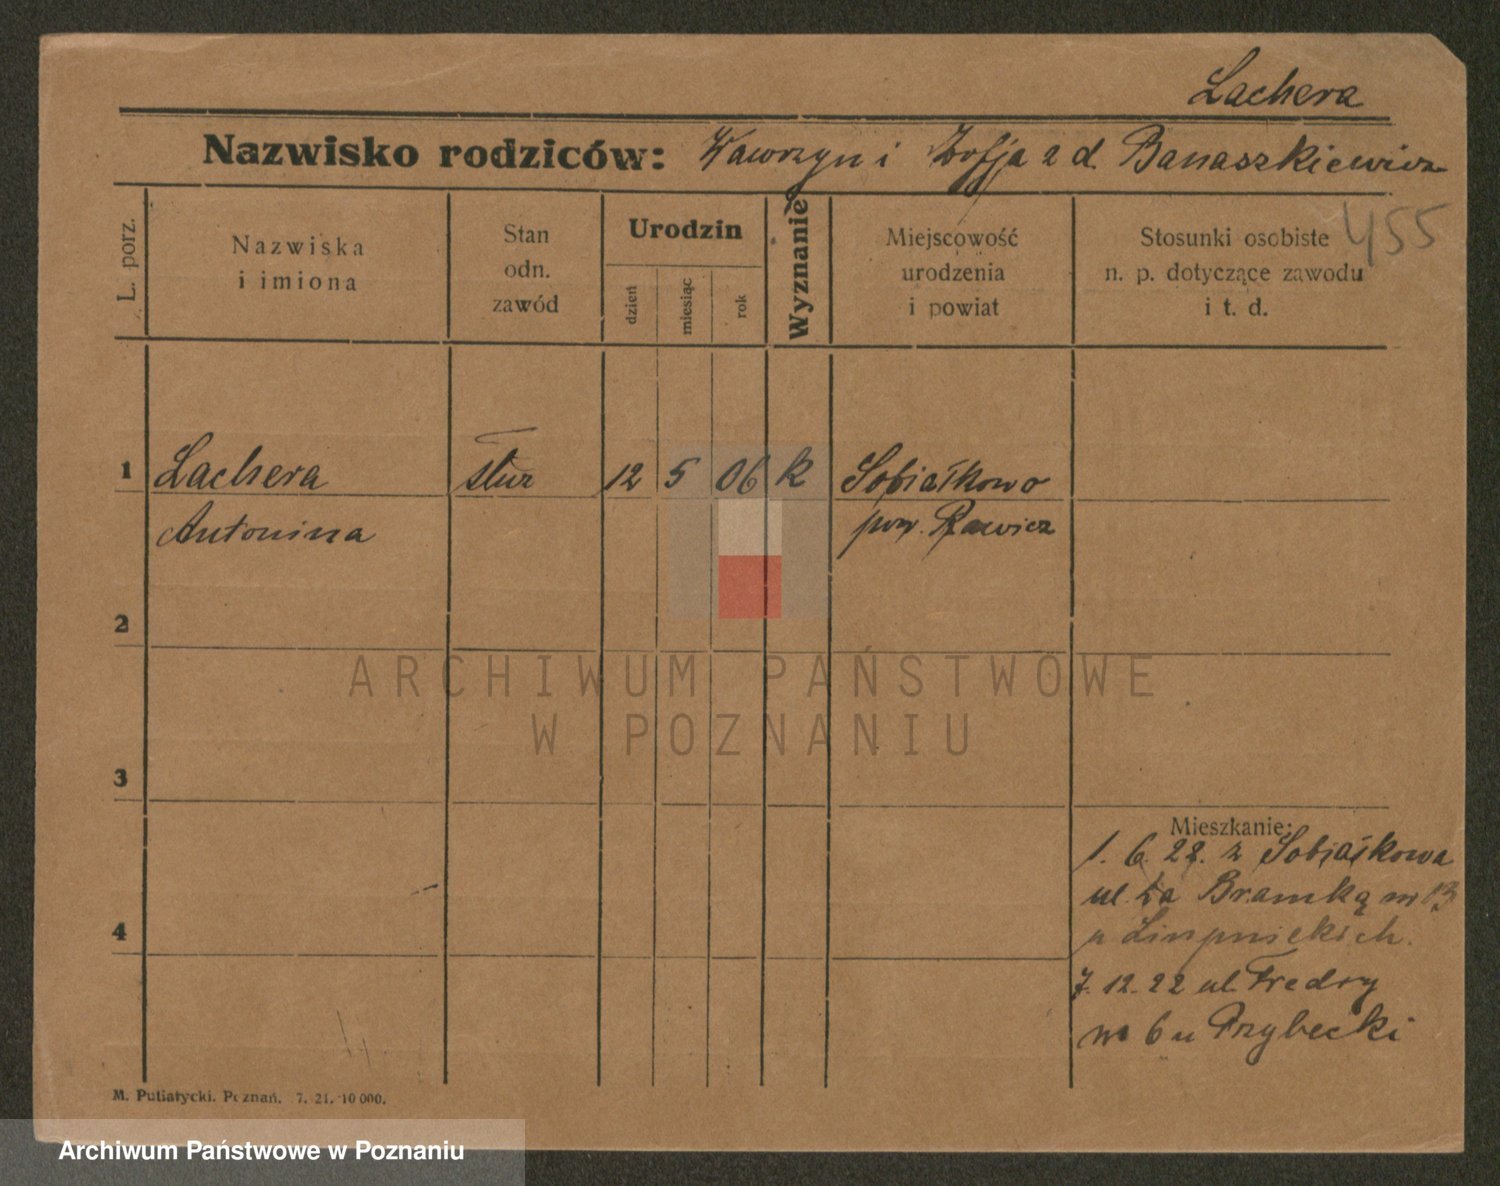 Lachera
Nazwisko rodziców: Wawrzyn i Zofja a d. Banaszkiewicz
455
L. porz.
Nazwiska
i imiona
Stan
odn.
zawód
Urodzin
dzień
miesiąc
rok
Wyznanie
Miejscowość
urodzenia
i powiat
Stosunki osobiste
n. p. dotyczące zawodu
i t. d.
1 Lachera służ 12 5 06 k Sobiałkowo
Antonina pow. Rawicz
2
ARCHIWUM PAŃSTWOWE
W POZNANIU
3
Mieszkanie:
1. 6. 22. z Sobiałkowa
ul. Za Bramką nr 13
4
7. 12. 22 ul. Fredry
nr 6 u Przybecki
M. Putiatycki. Poznań. 7. 21. 10 000.
Archiwum Państwowe w Poznaniu